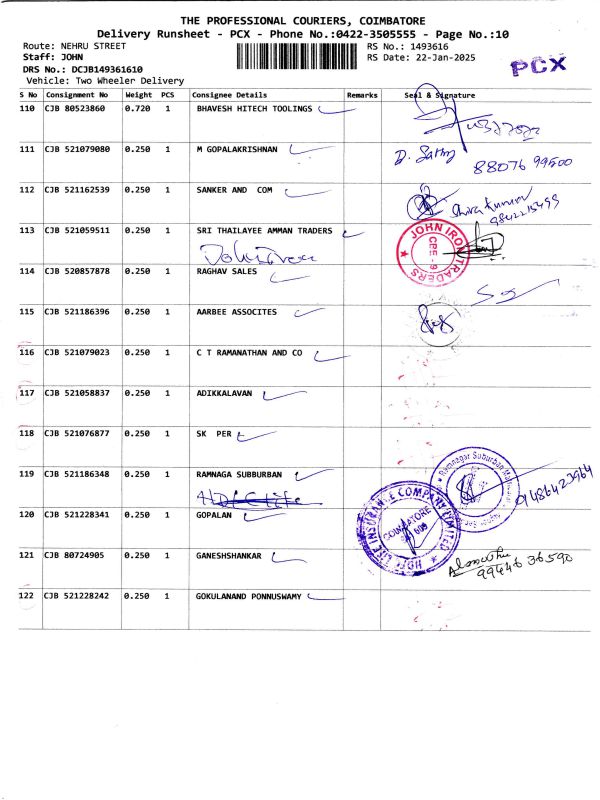 THE PROFESSIONAL COURIERS, COIMBATORE
Delivery Runsheet - PCX - Phone No.:0422-3505555 - Page No.:10
Route: NEHRU STREET RS No.: 1493616
Staff: JOHN RS Date: 22-Jan-2025
PCX
DRS No.: DCJB149361610
Vehicle: Two Wheeler Delivery
S No Consignment No Weight PCS Consignee Details Remarks Seal & Signature
110 CJB 80523860 0.720 1 BHAVESH HITECH TOOLINGS
111 CJB 521079080 0.250 1 M GOPALAKRISHNAN D. Sathy 88076 99500
112 CJB 521162539 0.250 1 SANKER AND COM Shiva Kumar
113 CJB 521059511 0.250 1 SRI THAILAYEE AMMAN TRADERS JOHN IRON TRADERS CBE - 9
114 CJB 520857878 0.250 1 RAGHAV SALES
115 CJB 521186396 0.250 1 AARBEE ASSOCITES
116 CJB 521079023 0.250 1 C T RAMANATHAN AND CO
117 CJB 521058837 0.250 1 ADIKKALAVAN
118 CJB 521076877 0.250 1 SK PER
119 CJB 521186348 0.250 1 RAMNAGA SUBBURBAN Ramnagar Suburban 9486423964
HDFC life
120 CJB 521228341 0.250 1 GOPALAN HDFC LIFE INSURANCE COMPANY LIMITED COIMBATORE
121 CJB 80724905 0.250 1 GANESHSHANKAR 99446 36590
122 CJB 521228242 0.250 1 GOKULANAND PONNUSWAMY